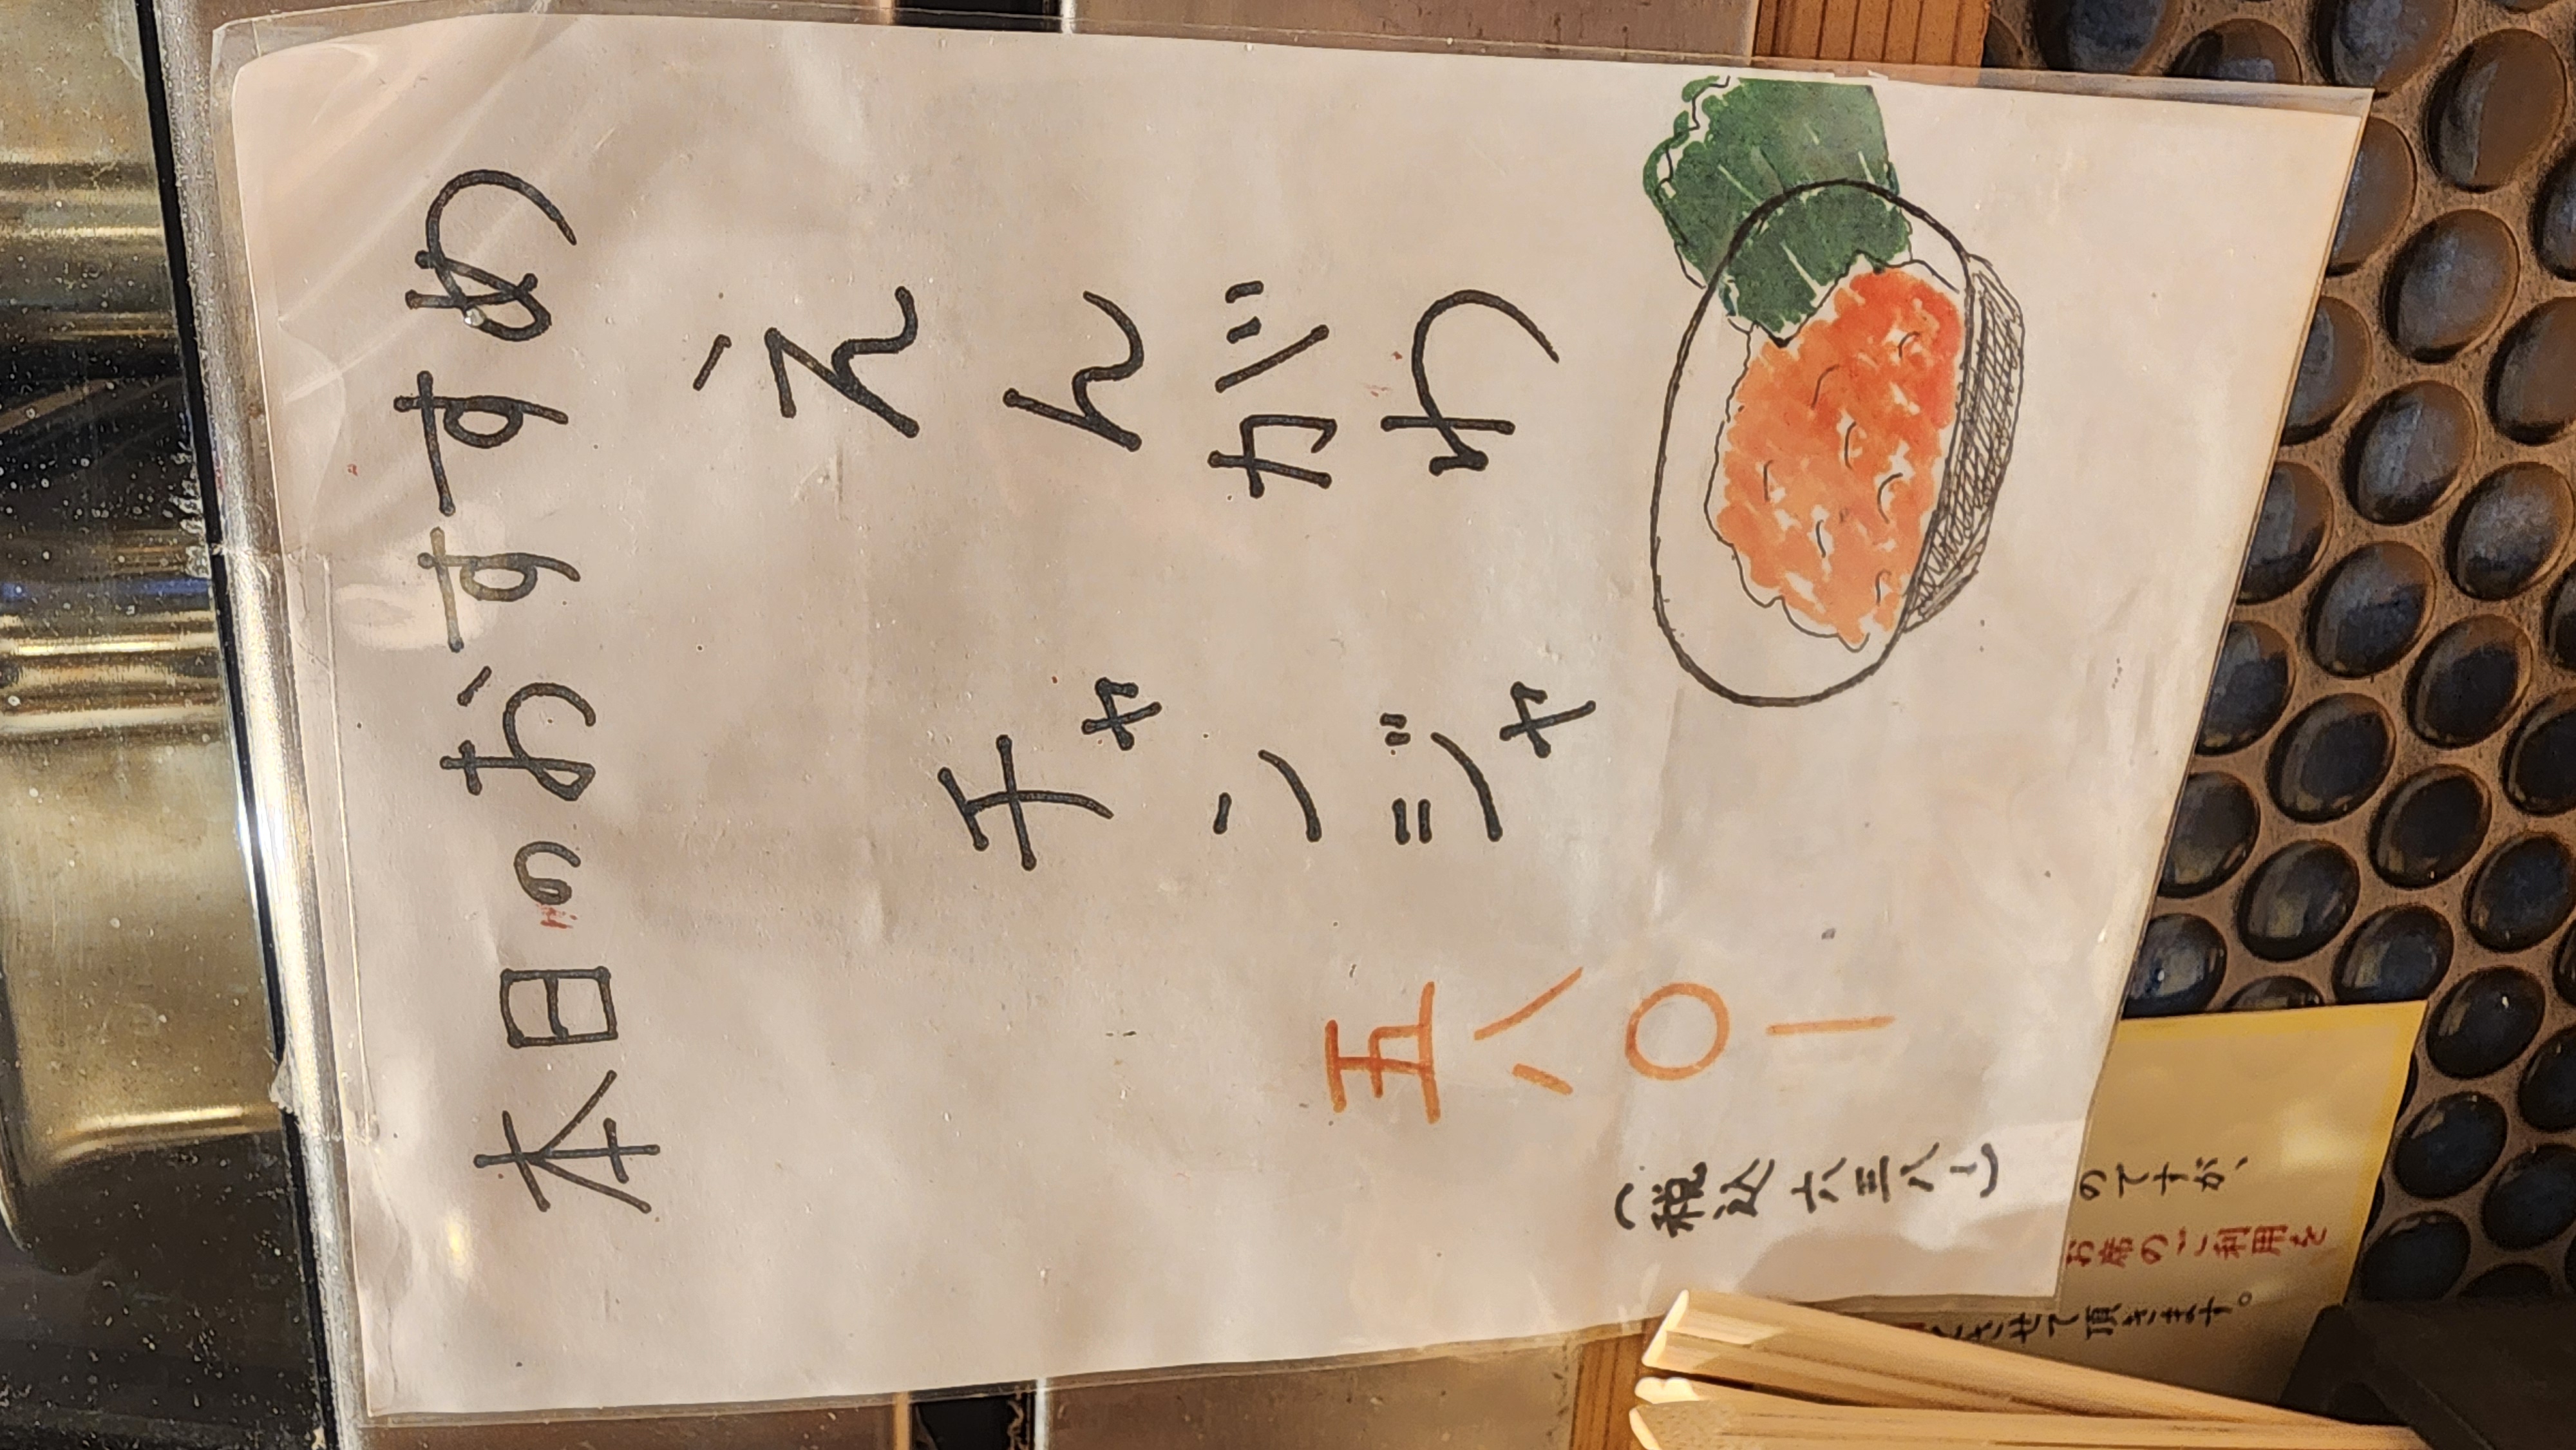 本日のおすすめ
えんがわ
チャンジャ
五八〇ー
(税込六三八し)
のですが、
お席のご利用を
とさせて頂きます。